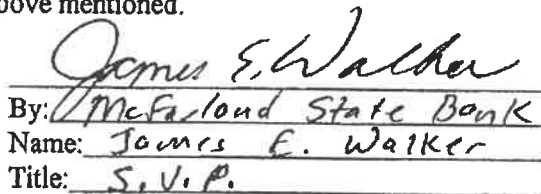 above mentioned.
James E. Walker
By: McFarland State Bank
Name: James E. Walker
Title: S.V.P.